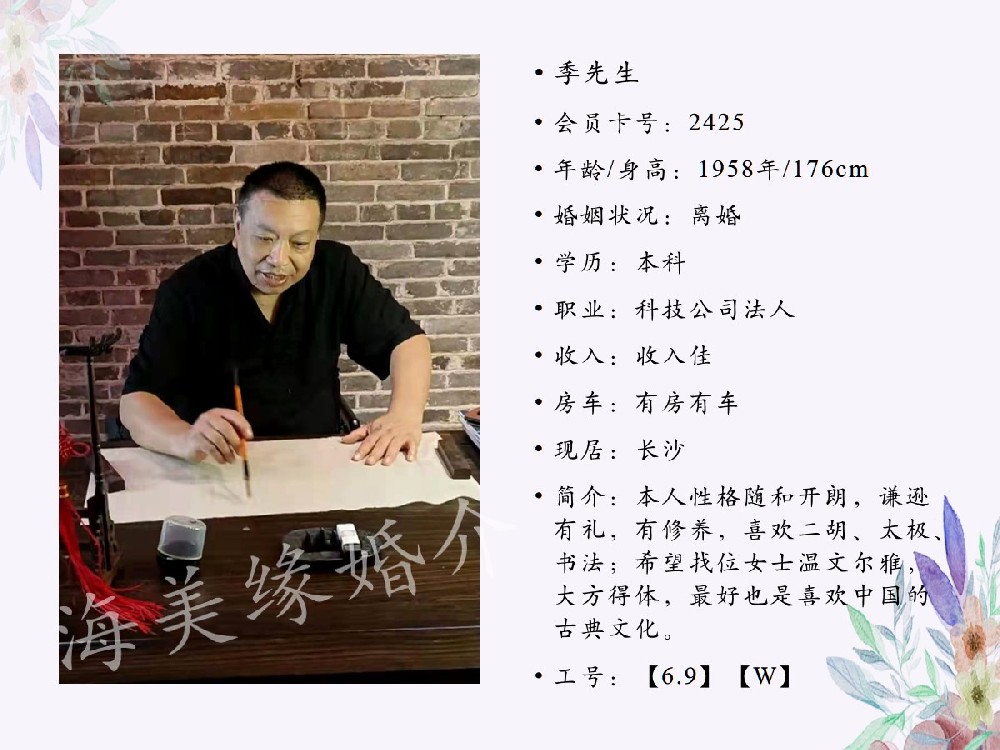 季先生
会员卡号：2425
年龄/身高：1958年/176cm
婚姻状况：离婚
学历：本科
职业：科技公司法人
收入：收入佳
房车：有房有车
现居：长沙
简介：本人性格随和开朗，谦逊
有礼，有修养，喜欢二胡、太极、
书法；希望找位女士温文尔雅，
大方得体，最好也是喜欢中国的
古典文化。
工号：【6.9】【W】
海美缘婚介